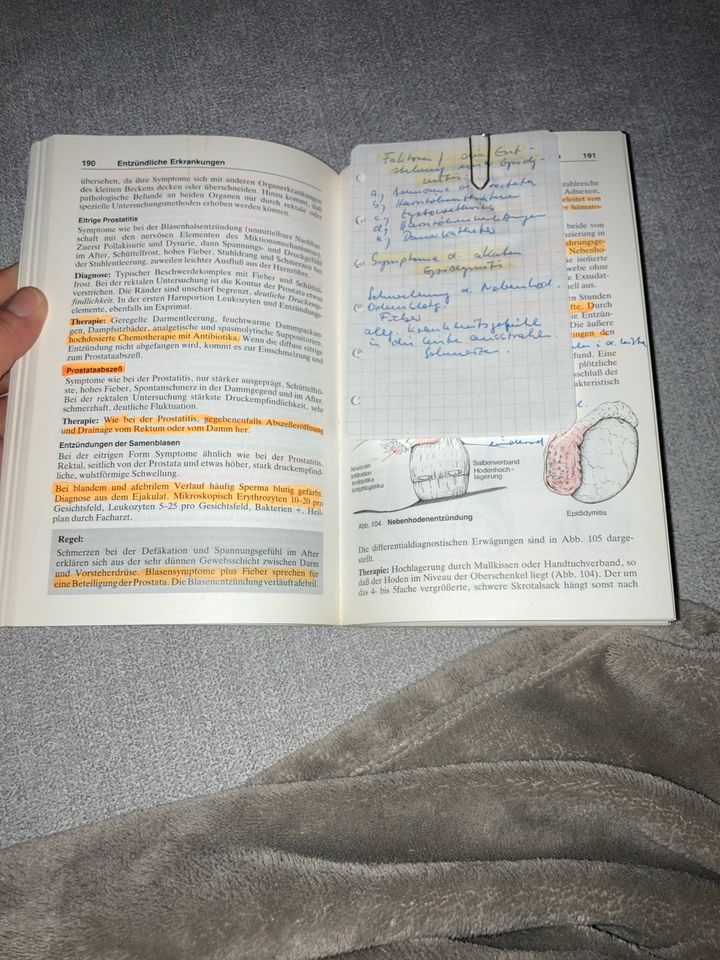 190 Entzündliche Erkrankungen
übersehen, da ihre Symptome sich mit anderen Organerkrankungen
des kleinen Beckens decken oder überschneiden. Hinzu kommt, daß
pathologische Befunde an beiden Organen nur durch rektale oder
spezielle Untersuchungsmethoden erhoben werden können.
Eitrige Prostatitis
Symptome wie bei der Blasenhalsentzündung (unmittelbare Nachbar-
schaft mit den nervösen Elementen des Miktionsmechanismus).
Zuerst Pollakisurie und Dysurie, dann Spannungs- und Druckgefühl
im After, Schüttelfrost, hohes Fieber, Stuhldrang und Schmerzen bei
der Stuhlentleerung, zuweilen leichter Ausfluß aus der Harnröhre.
Diagnose: Typischer Beschwerdekomplex mit Fieber und Schüttel-
frost. Bei der rektalen Untersuchung ist die Kontur der Prostata etwas
verstrichen. Die Ränder sind unscharf begrenzt, deutliche Druckemp-
findlichkeit. In der ersten Harnportion Leukozyten und Entzündungs-
elemente, ebenfalls im Exprimat.
Therapie: Geregelte Darmentleerung, feuchtwarme Dammpackun-
gen, Dampfsitzbäder, analgetische und spasmolytische Suppositorien,
hochdosierte Chemotherapie mit Antibiotika. Wenn die diffuse eitrige
Entzündung nicht abgefangen wird, kommt es zur Einschmelzung und
zum Prostataabszeß.
Prostataabszeß
Symptome wie bei der Prostatitis, nur stärker ausgeprägt, Schüttelfrö-
ste, hohes Fieber, Spontanschmerz in der Dammgegend und im After.
Bei der rektalen Untersuchung stärkste Druckempfindlichkeit, sehr
schmerzhaft, deutliche Fluktuation.
Therapie: Wie bei der Prostatitis, gegebenenfalls Abszeßeröffnung
und Drainage vom Rektum oder vom Damm her.
Entzündungen der Samenblasen
Bei der eitrigen Form Symptome ähnlich wie bei der Prostatitis.
Rektal, seitlich von der Prostata und etwas höher, stark druckempfind-
liche, wulstförmige Schwellung.
Bei blandem und afebrilem Verlauf häufig Sperma blutig gefärbt.
Diagnose aus dem Ejakulat. Mikroskopisch Erythrozyten 10–20 pro
Gesichtsfeld, Leukozyten 5–25 pro Gesichtsfeld, Bakterien +. Heil-
plan durch Facharzt.
Regel:
Schmerzen bei der Defäkation und Spannungsgefühl im After
erklären sich aus der sehr dünnen Gewebsschicht zwischen Darm
und Vorsteherdrüse. Blasensymptome plus Fieber sprechen für
eine Beteiligung der Prostata. Die Blasenentzündung verläuft afebril.
191
Faktoren
a)
b)
c)
d) Harnröhren
e) Dauerkatheter
Symptome d. akuten
Schwellung d. Nebenhod.
Fieber
allg. Krankheitsgefühl
in die Leiste ausstrahlen
Schmerzen.
zahlreiche
Adnexen,
beide von
isolierte
webe ohne
Exsudat-
ell aus.
Stunden
Durch
Entzün-
Die äußere
fund. Eine
plötzliche
schluß der
akteristisch
Novocain
Infiltration
Antibiotika
Antiphlogistika
Salbenverband
Hodenhoch-
lagerung
Epididymitis
Abb. 104 Nebenhodenentzündung
Die differentialdiagnostischen Erwägungen sind in Abb. 105 darge-
stellt.
Therapie: Hochlagerung durch Mullkissen oder Handtuchverband, so
daß der Hoden im Niveau der Oberschenkel liegt (Abb. 104). Der um
das 4- bis 5fache vergrößerte, schwere Skrotalsack hängt sonst nach